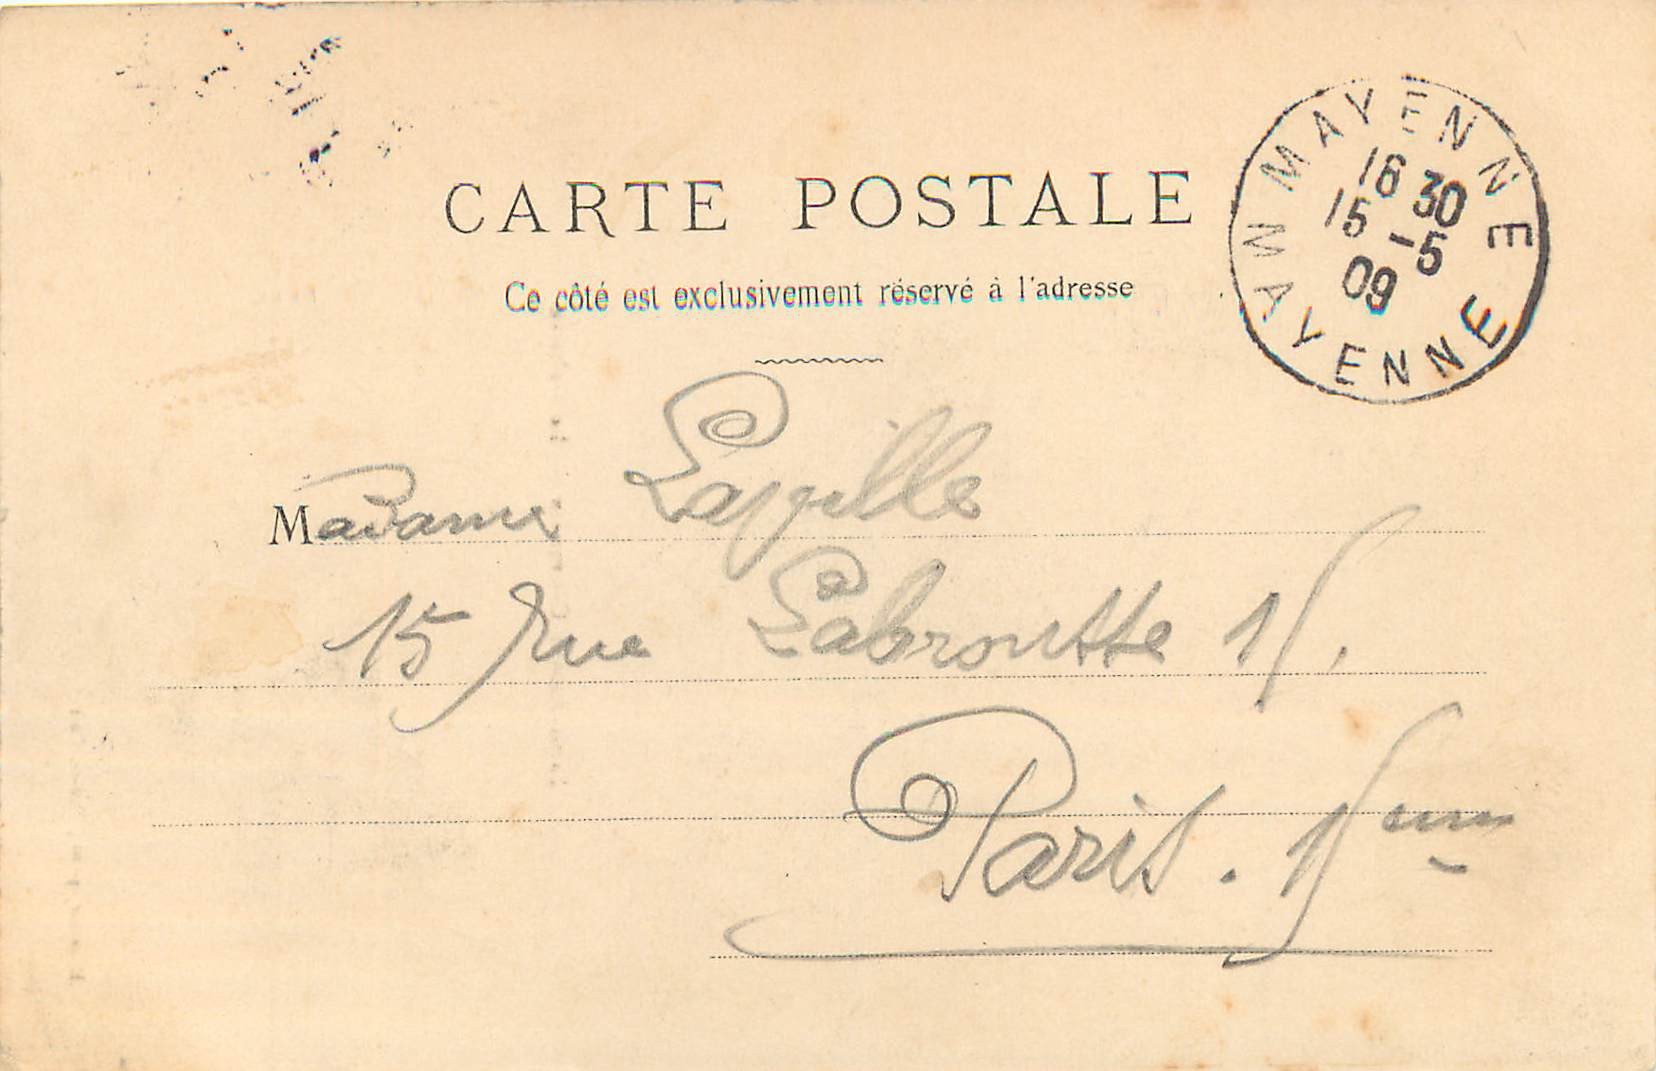 CARTE POSTALE
Ce côté est exclusivement réservé à l'adresse
MAYENNE
16 30
15 -5
09
MAYENNE
Madame Lapille
15 rue Labroutte 15.
Paris. 15eme